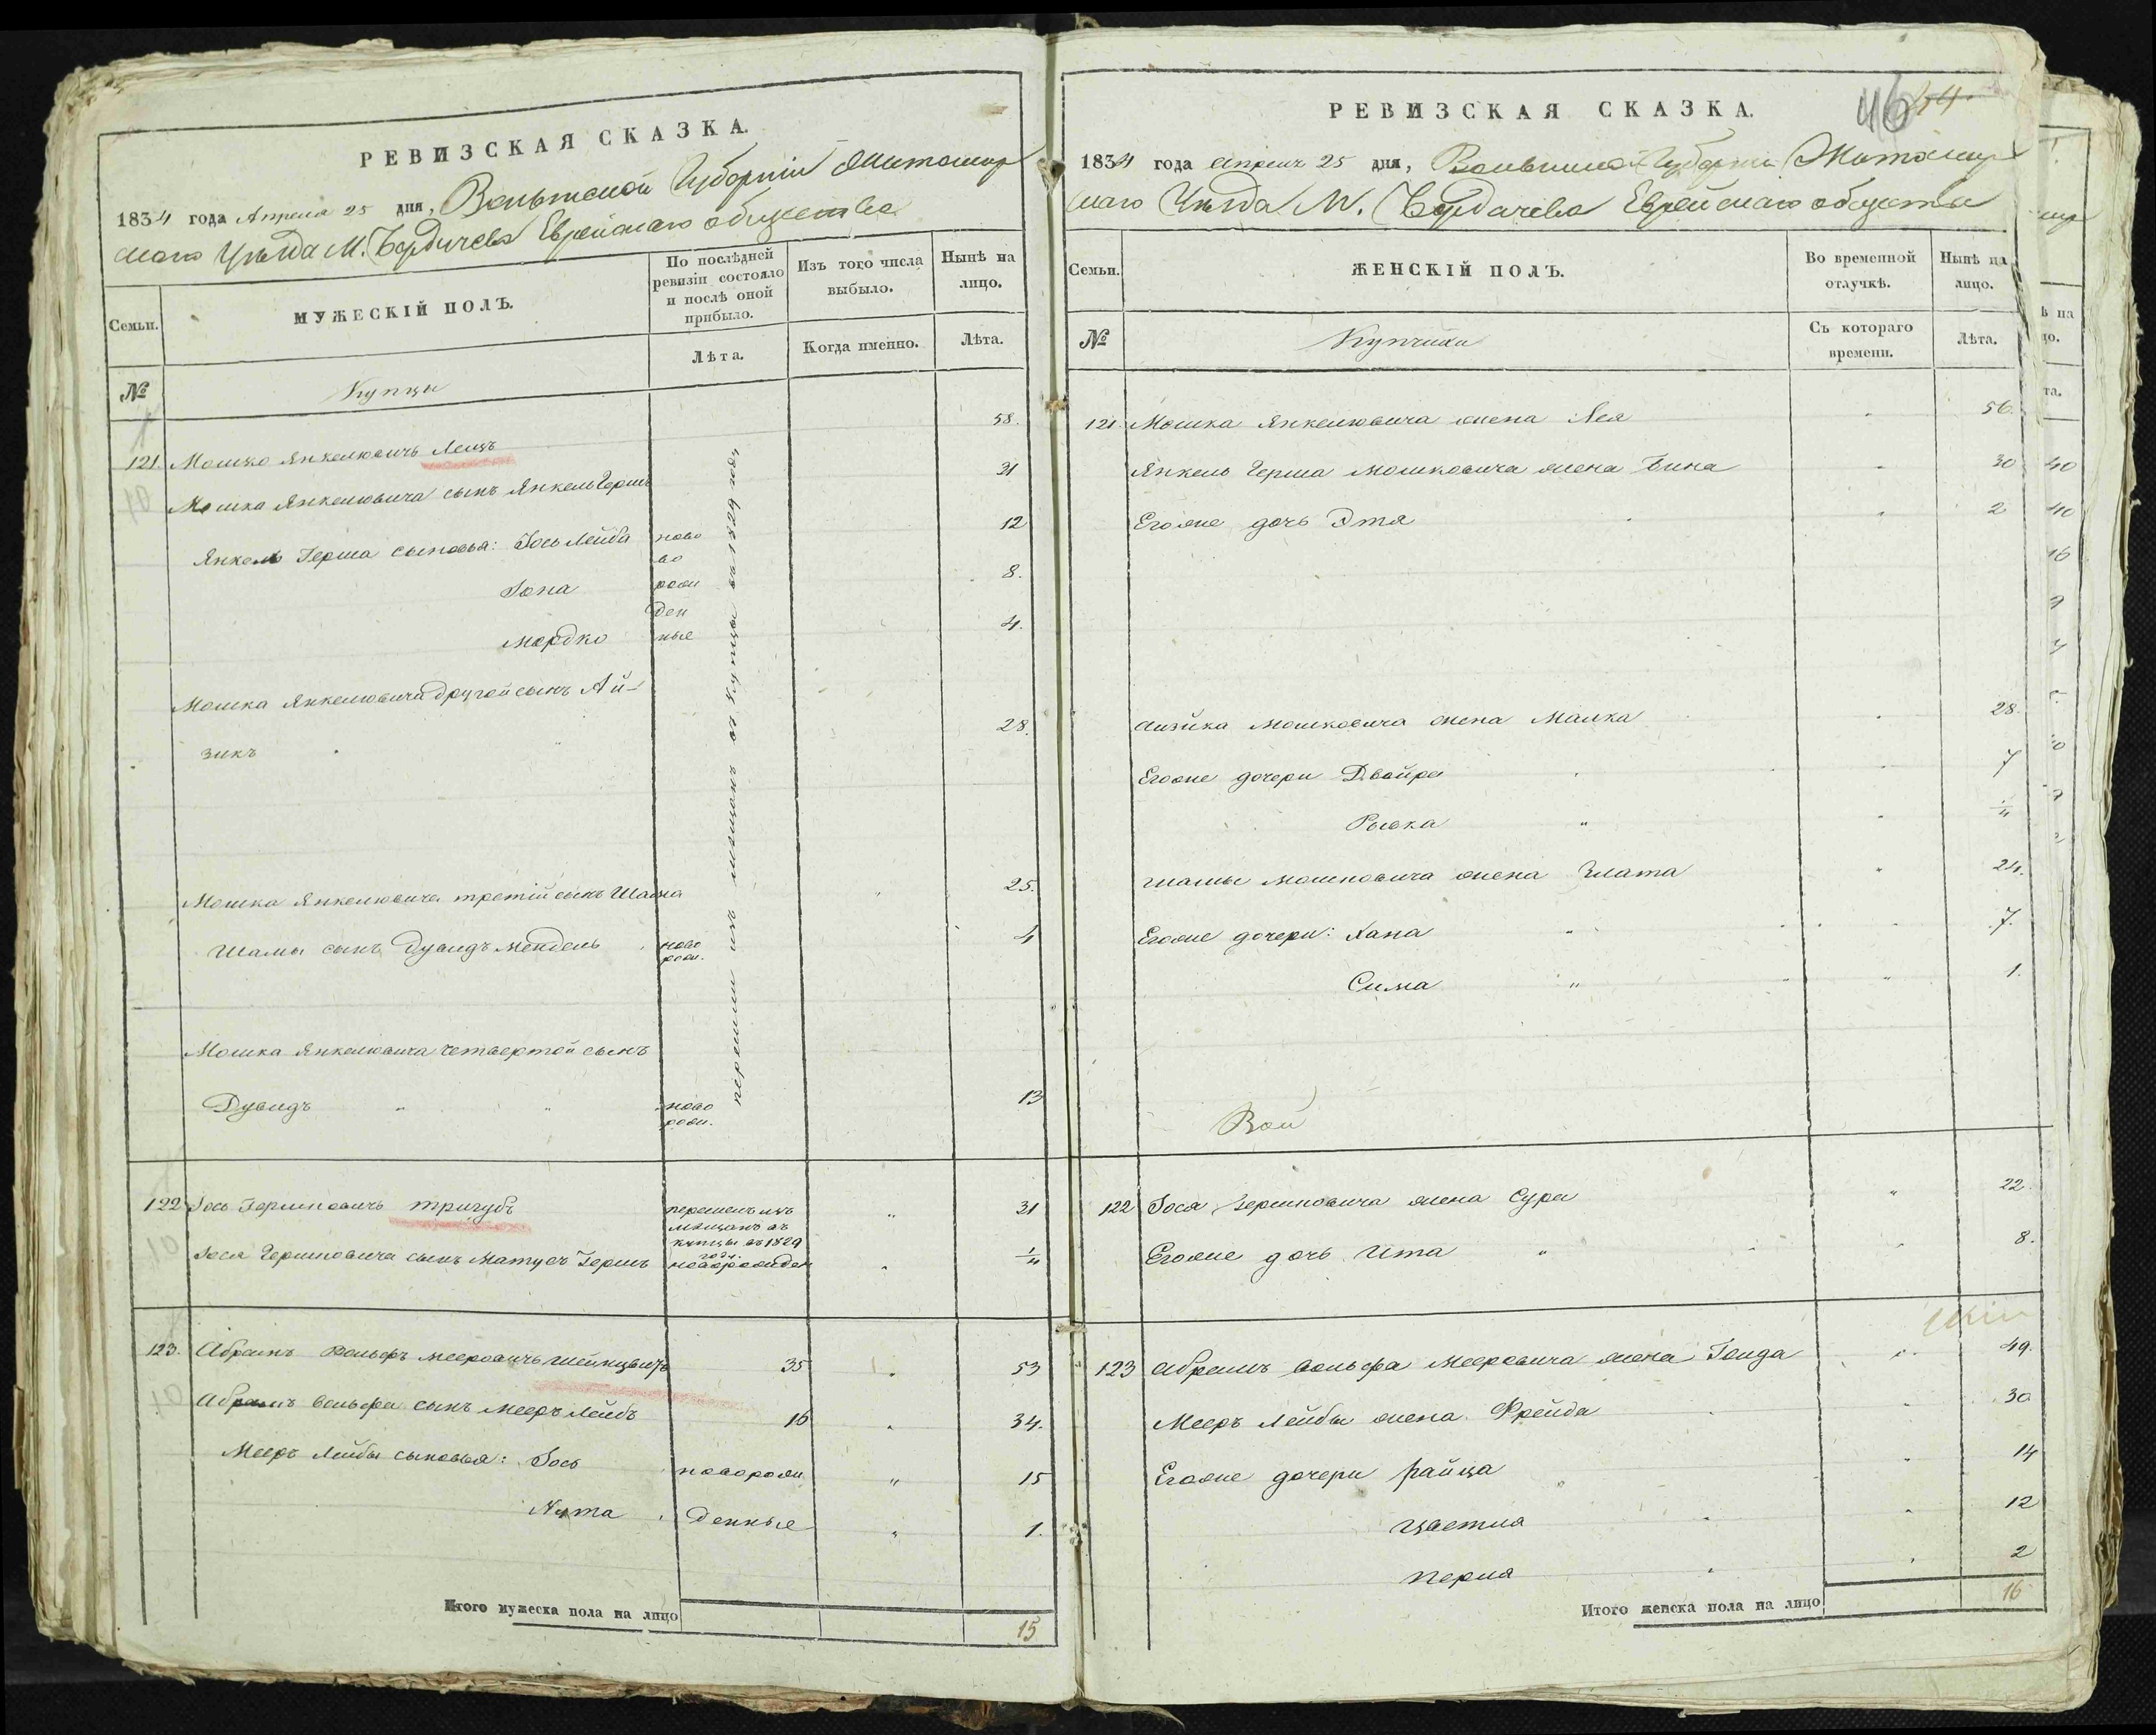 РЕВИЗСКАЯ СКАЗКА.
1834 года Апреля 25 дня, Волынской Губерніи Житомир
скаго Уѣзда М. Бердичева Еврейскаго общества
Семьи.
МУЖЕСКІЙ ПОЛЪ.
По послѣдней ревизіи состояло и послѣ оной прибыло.
Изъ того числа выбыло.
Нынѣ на лицо.
№
Купцы
Лѣта.
Когда именно.
Лѣта.
121. Мошко Янкелювичъ Ленцъ 58.
Мошка Янкелювича сынъ Янкель Гершъ 31
Янкель Герша сыновья: Іось Лейба ново 12
во
Іона рож 8.
ден
Мордко ные 4.
перешли изъ мещанъ въ Купцы въ 1829 году
Мошка Янкелювича другой сынъ Ай-
зикъ 28.
Мошка Янкелювича третій сынъ Шама 25.
Шамы сынъ Дувидъ Мендель ново рож. 4
Мошка Янкелювича четвертой сынъ
Дувидъ ново рож. 13
122 Іось Гершковичъ Тригубъ перешелъ изъ мещанъ въ купцы въ 1829 году. 31
Іося Гершковича сынъ Матусъ Гершъ новорожден 1/4
123. Абрамъ Вольфъ Мееровичъ 35 53
Абрамъ Вольфа сынъ Мееръ Лейбъ 16 34.
Мееръ Лейбы сыновья: Іось новорож 15
Нута денные 1.
Итого мужеска пола на лицо
15
46
РЕВИЗСКАЯ СКАЗКА.
1834 года Апреля 25 дня, Волынской Губерніи Житомир
скаго Уѣзда М. Бердичева Еврейскаго общества
Семьи.
ЖЕНСКІЙ ПОЛЪ.
Во временной отлучкѣ.
Нынѣ на лицо.
№
Купчихи
Съ котораго времени.
Лѣта.
121. Мошка Янкелювича жена Лея 56.
Янкель Герша Мошковича жена Бина 30
Егоже дочь Этя 2
Айзика Мошковича жена Малка 28.
Егоже дочери Двойра 7
Рывка 1/4
Шамы Мошковича жена Злата 24.
Егоже дочери: Хана 7.
Сима 1.
Вол
122 Іося Гершковича жена Сура 22.
Егоже дочь Ита 8.
123 Абрамъ Вольфа Мееровича жена Генда 49.
Мееръ Лейбы жена Фрейда 30
Егоже дочери Райца 14
Цветля 12
Перля 2
Итого женска пола на лицо
16